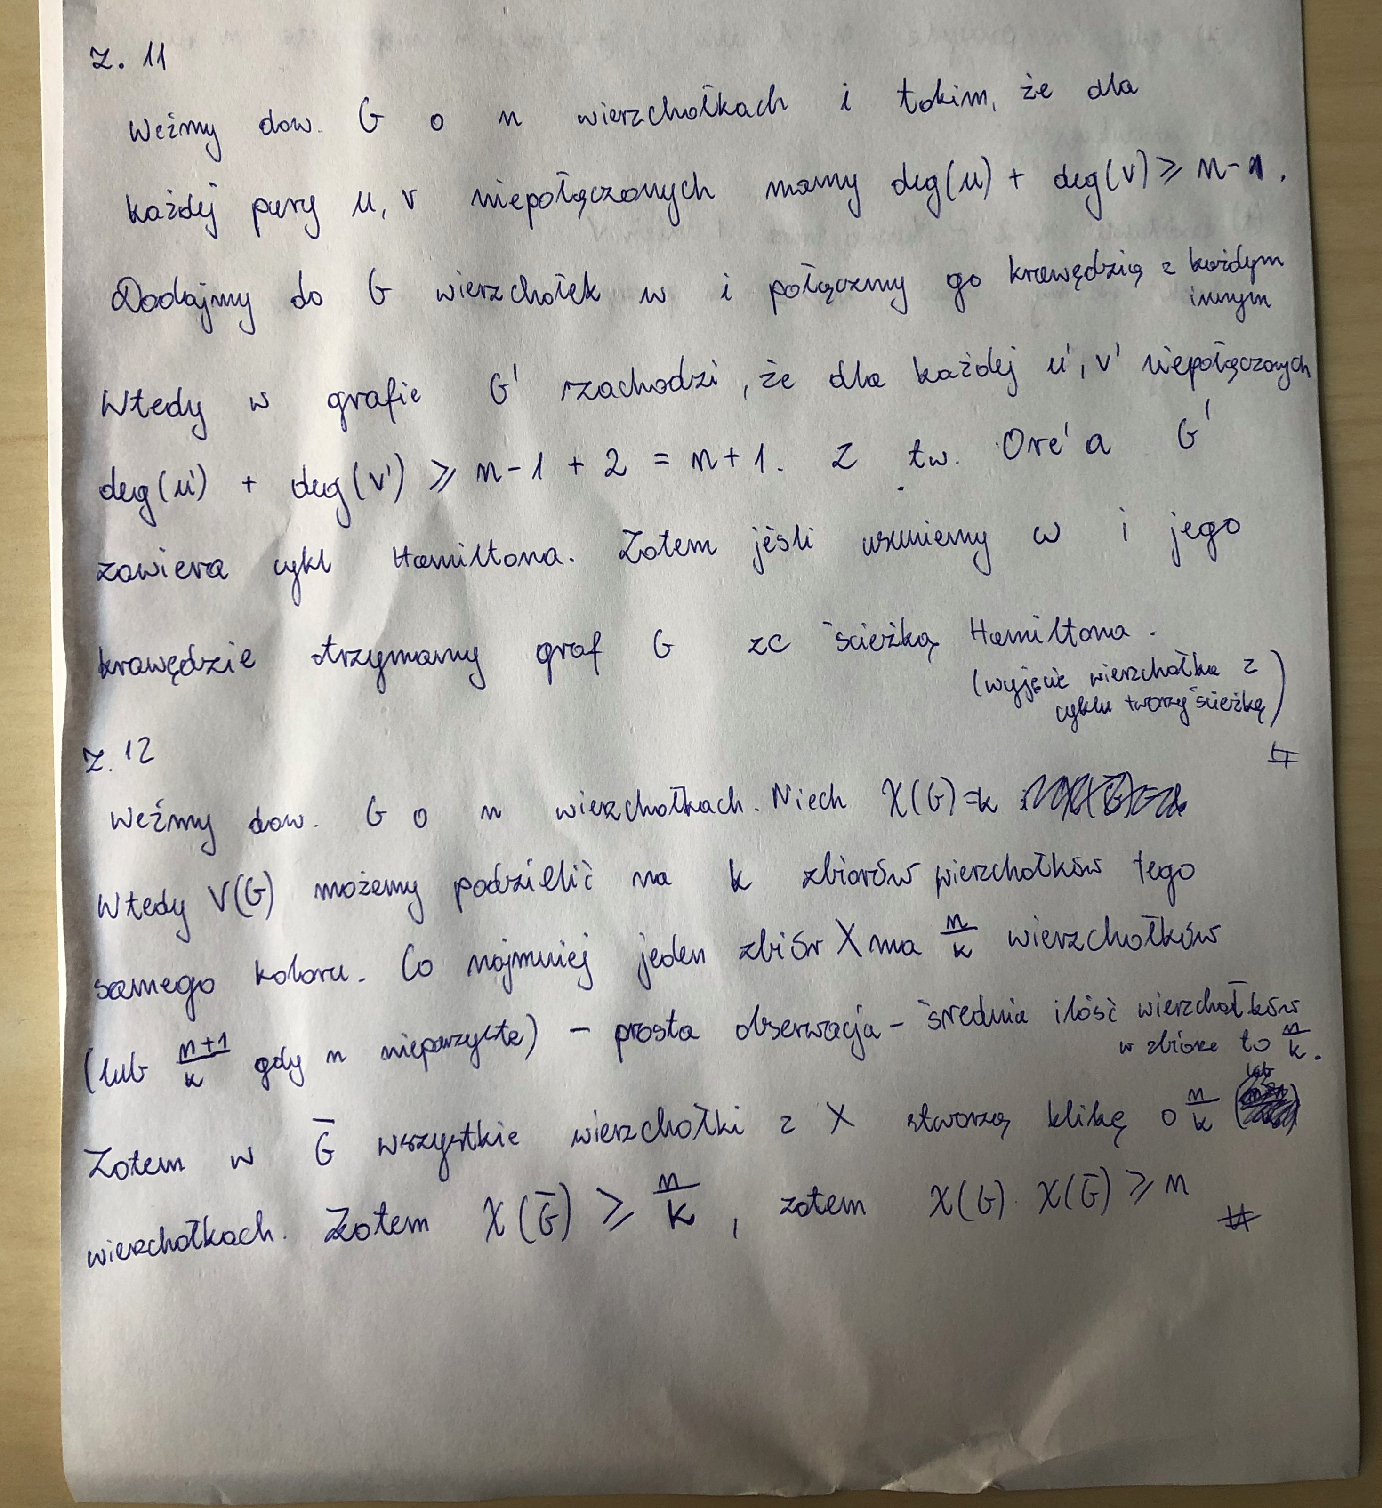 Z. 11
Weźmy dow. G o n wierzchołkach i takim, że dla
każdej pary u, v niepołączonych mamy deg(u) + deg(v) ⩾ n-1.
Dodajmy do G wierzchołek w i połączmy go krawędzią z każdym
innym
Wtedy w grafie G' zachodzi, że dla każdej u', v' niepołączonych
deg(u') + deg(v') ⩾ n-1 + 2 = n+1. Z tw. Ore'a G'
zawiera cykl Hamiltona. Zatem jeśli usuniemy w i jego
krawędzie otrzymamy graf G ze ścieżką Hamiltona.
(wyjęcie wierzchołka z
cyklu tworzy ścieżkę)
Z. 12
Weźmy dow. G o n wierzchołkach. Niech χ(G)=k
Wtedy V(G) możemy podzielić na k zbiorów wierzchołków tego
samego koloru. Co najmniej jeden zbiór X ma n/k wierzchołków
(lub n+1/k gdy n nieparzyste) – prosta obserwacja – średnia ilość wierzchołków
w zbiorze to n/k.
Zatem w G̅ wszystkie wierzchołki z X stworzą klikę o n/k (lub
wierzchołkach. Zatem χ(G̅) ⩾ n/k, zatem χ(G) · χ(G̅) ⩾ n